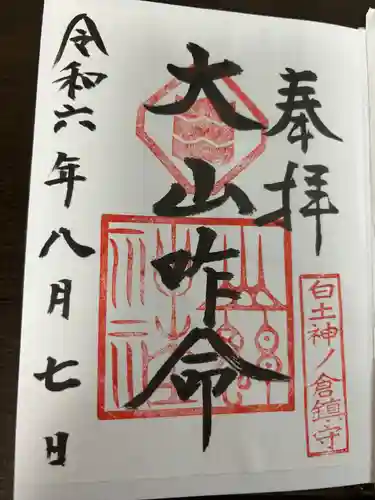 奉拝
白土神ノ倉鎮守
大山咋命
令和六年八月七日